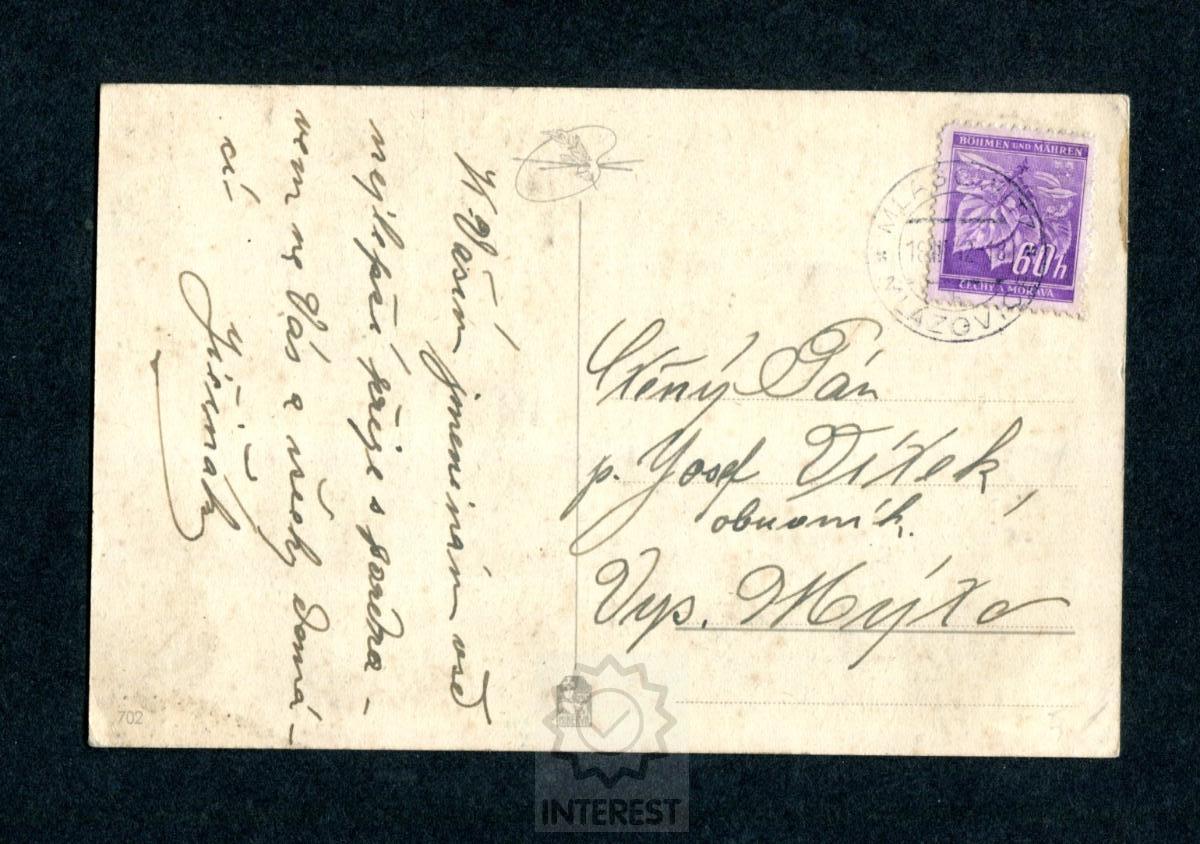 K Vašim jmeninám vše
nejlepší přeje s pozdra-
vem na Vás a všechy domá-
cí
BÖHMEN UND MÄHREN
60h
ČECHY A MORAVA
Ctěný Pán
p. Josef Vítek,
obuvník.
Vys. Mýto
702
INTEREST